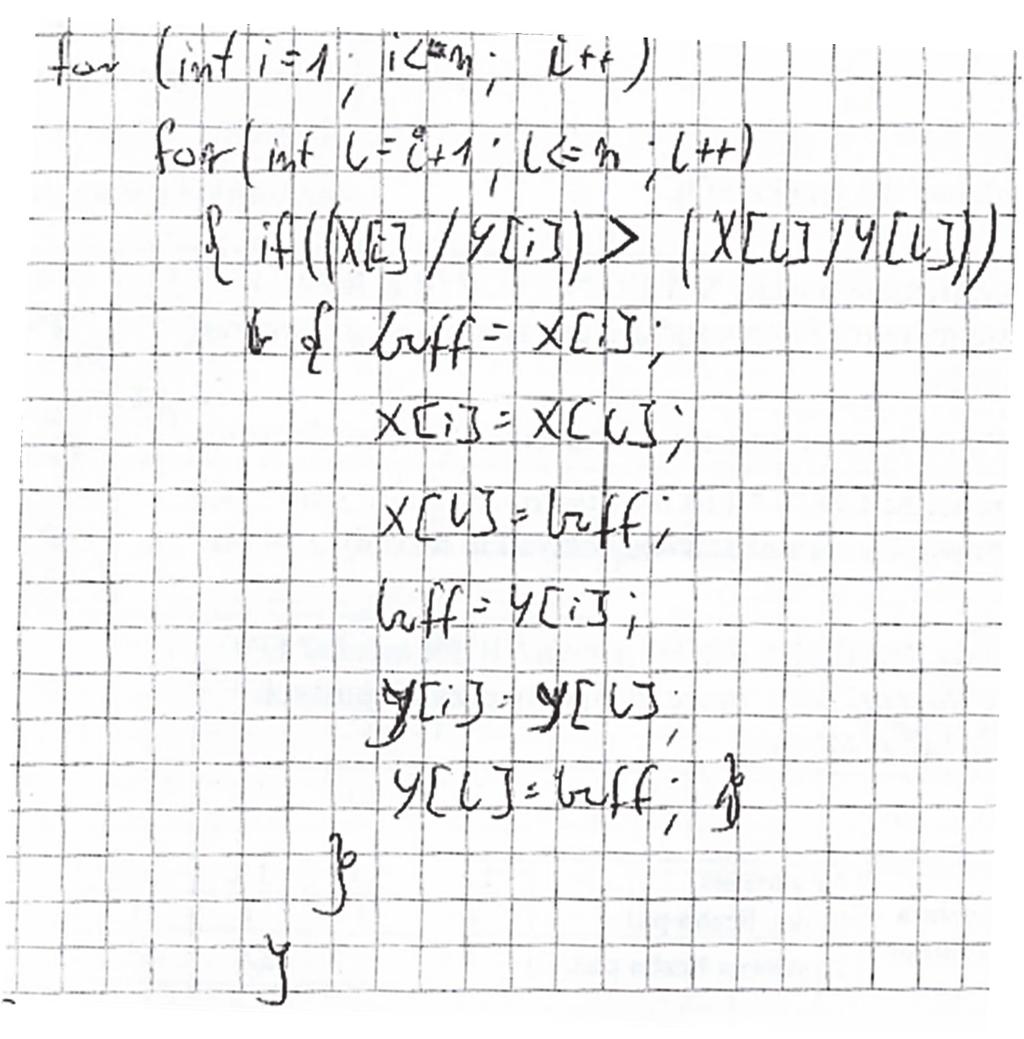 for (int i=1; i<=n; i++)
for (int l=i+1; l<=n; l++)
{ if ((X[i] / Y[i]) > (X[l] / Y[l]))
{ buff = X[i];
X[i] = X[l];
X[l] = buff;
buff = Y[i];
Y[i] = Y[l];
Y[l] = buff; }
}
}